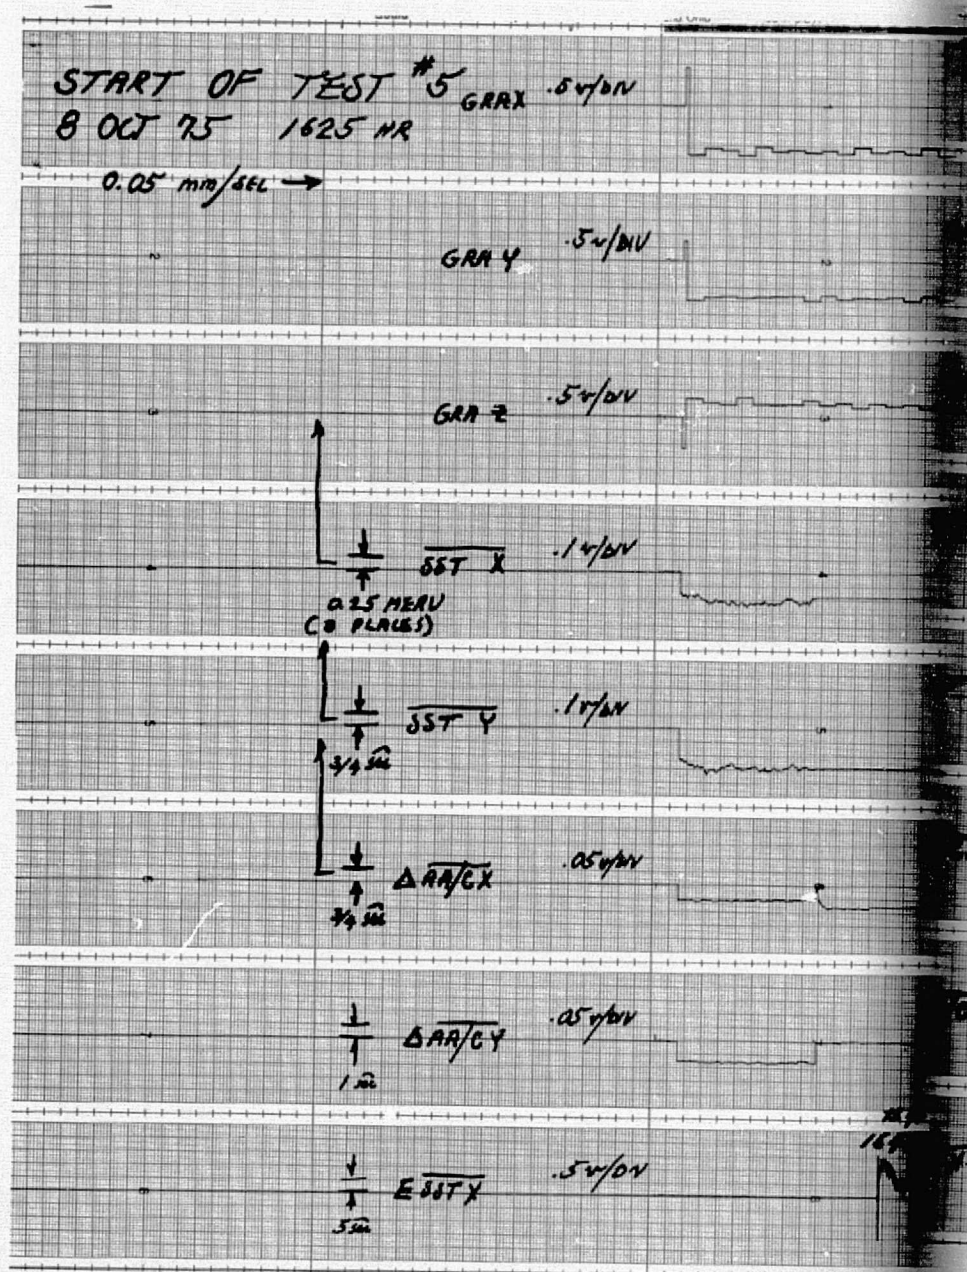 START OF TEST #5
GRAX .5 v/DIV
8 OCT 75 1625 HR
0.05 mm/SEC →
GRA Y .5 v/DIV
GRA Z .5 v/DIV
SST X .1 v/DIV
0.25 MERU
PLACES)
SST Y .1 v/DIV
3/4 sec
Δ AA/CX .05 v/DIV
3/4 sec
Δ AA/CY .05 v/DIV
1 sec
E SST X .5 v/DIV
5 sec